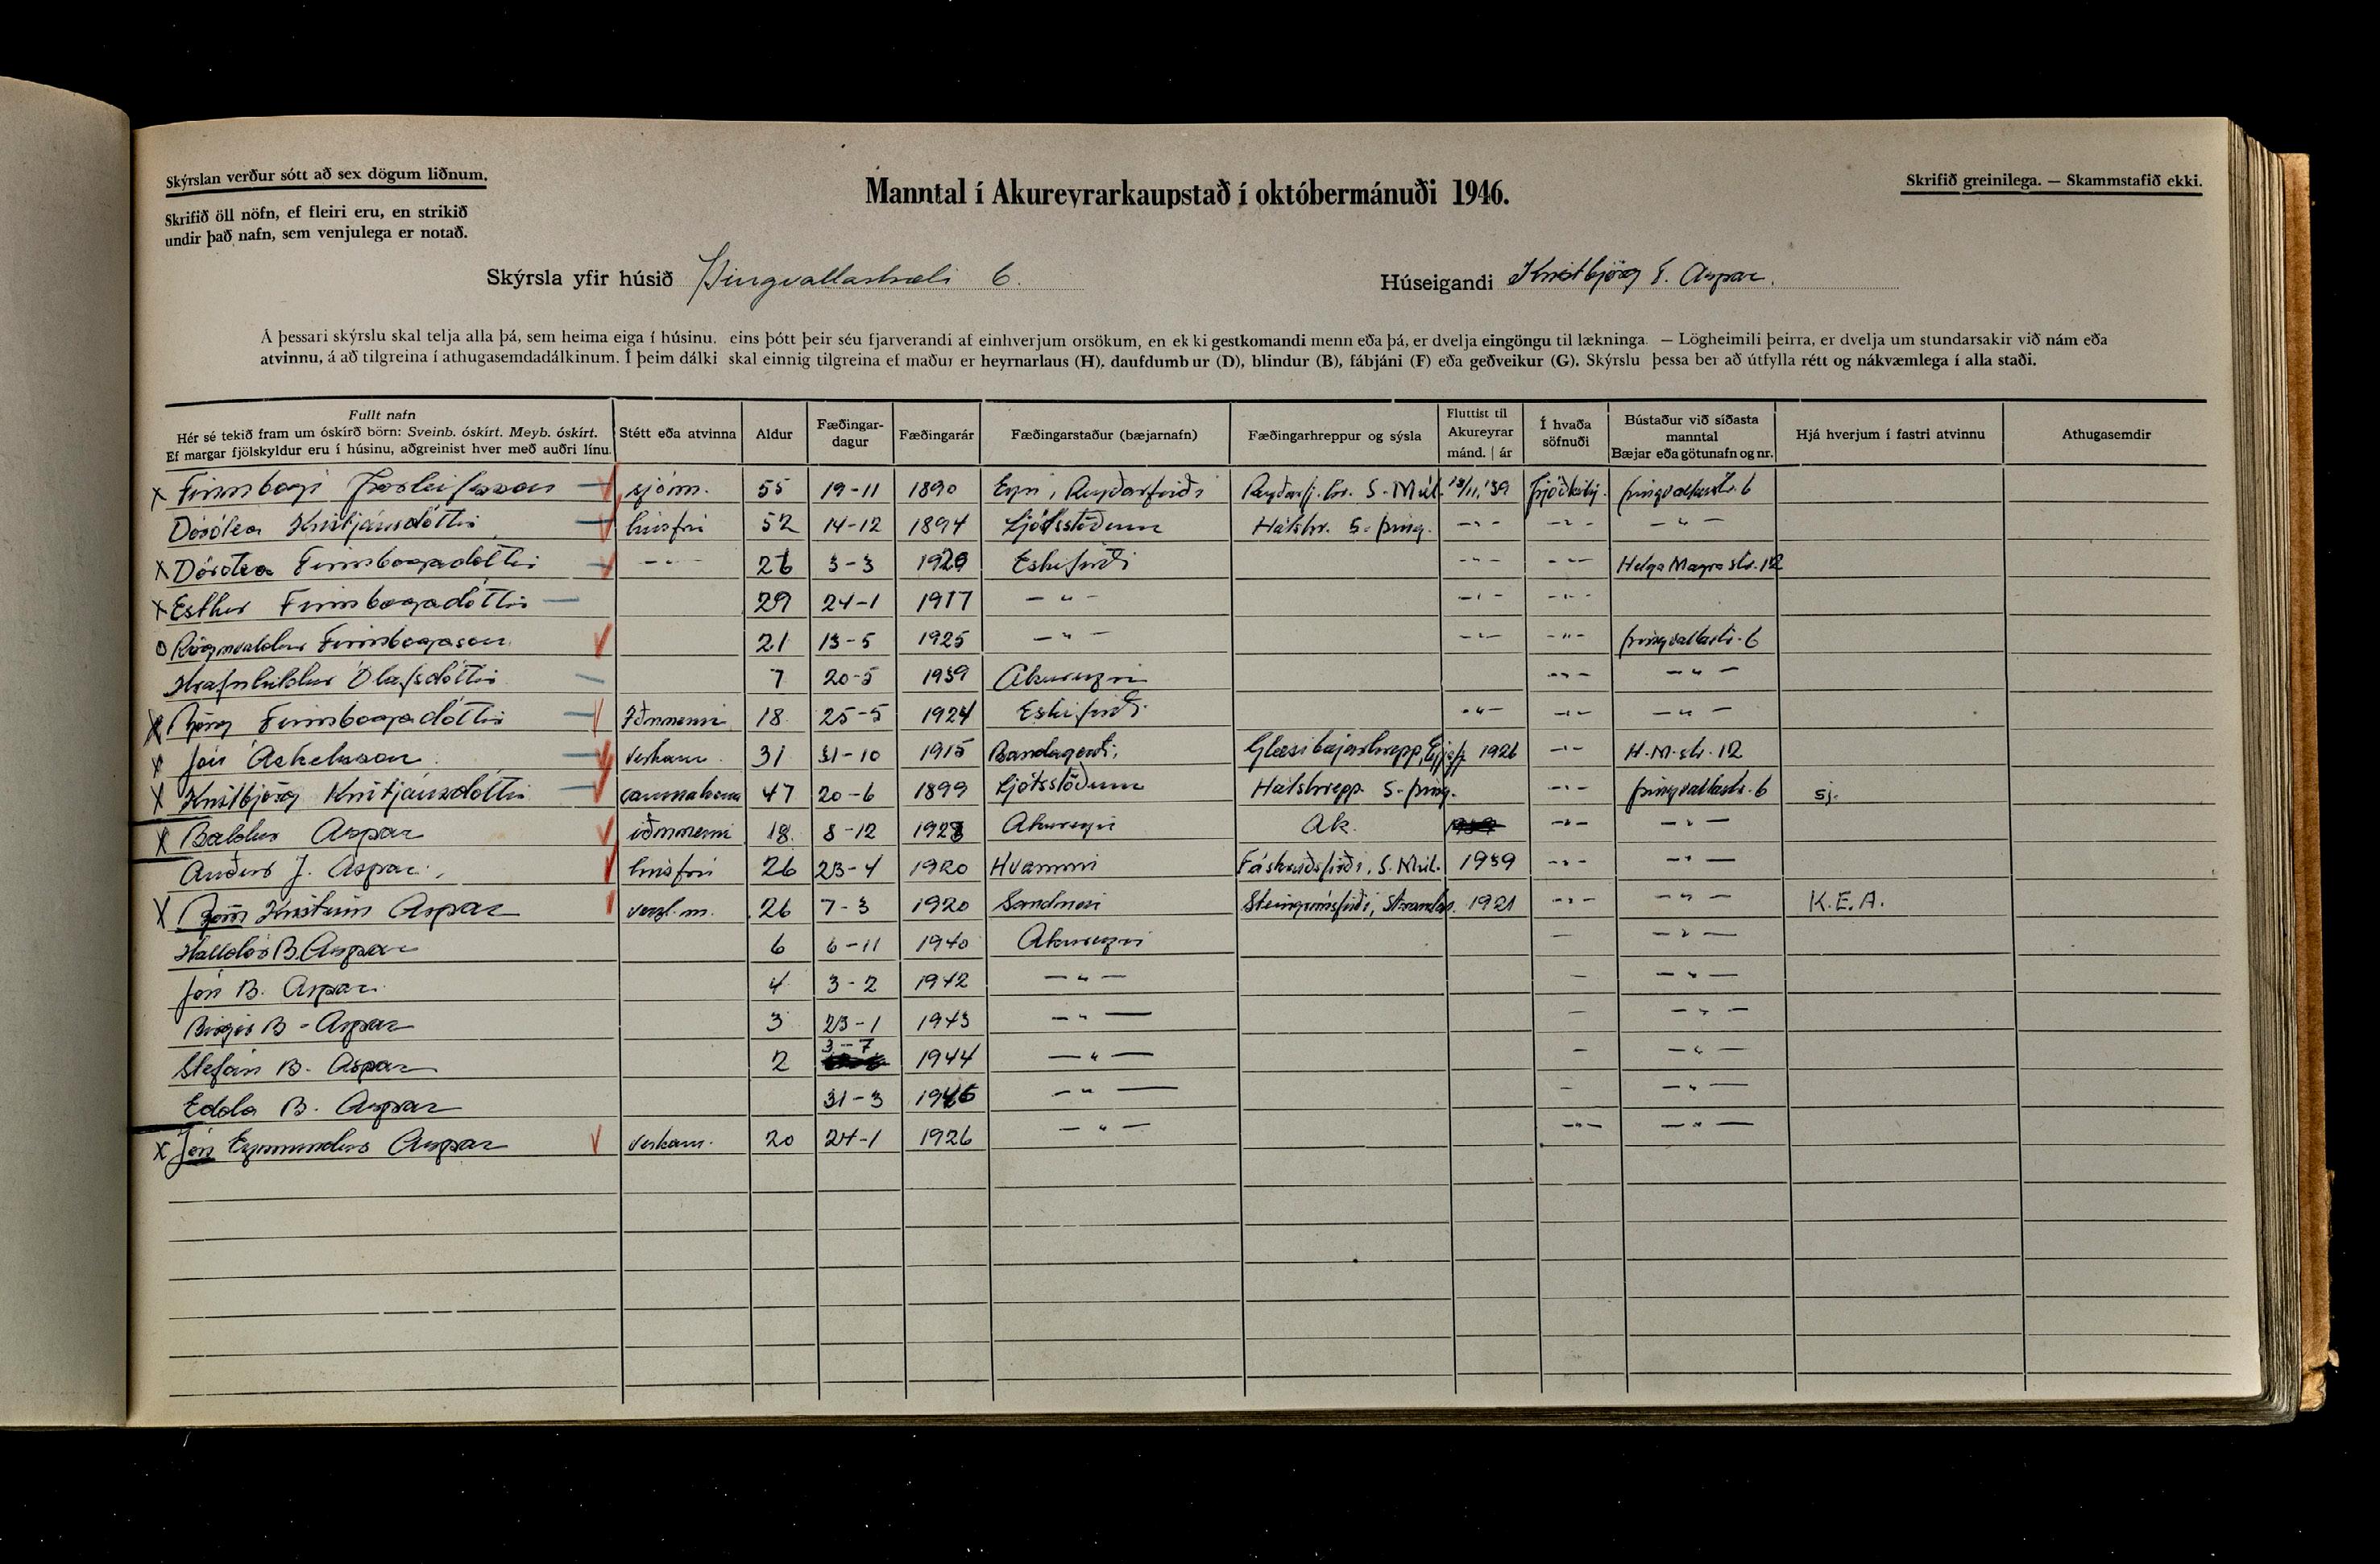 Skýrslan verður sótt að sex dögum liðnum.
Skrifið öll nöfn, ef fleiri eru, en strikið
undir það nafn, sem venjulega er notað.
Manntal í Akureyrarkaupstað í októbermánuði 1946.
Skrifið greinilega. — Skammstafið ekki.
Skýrsla yfir húsið Þingvallastræti 6.
Húseigandi Kristbjörg F. Aspar.
Á þessari skýrslu skal telja alla þá, sem heima eiga í húsinu, eins þótt þeir séu fjarverandi af einhverjum orsökum, en ekki gestkomandi menn eða þá, er dvelja eingöngu til lækninga. — Lögheimili þeirra, er dvelja um stundarsakir við nám eða
atvinnu, á að tilgreina í athugasemdadálkinum. Í þeim dálki skal einnig tilgreina ef maður er heyrnarlaus (H), daufdumbur (D), blindur (B), fábjáni (F) eða geðveikur (G). Skýrslu þessa ber að útfylla rétt og nákvæmlega í alla staði.
Fullt nafn
Hér sé tekið fram um óskírð börn: Sveinb. óskírt. Meyb. óskírt.
Ef margar fjölskyldur eru í húsinu, aðgreinist hver með auðri línu.
Stétt eða atvinna
Aldur
Fæðingar-
dagur
Fæðingarár
Fæðingarstaður (bæjarnafn)
Fæðingarhreppur og sýsla
Fluttist til
Akureyrar
mánd. | ár
Í hvaða
söfnuði
Bústaður við síðasta
manntal
Bæjar eða götunafn og nr.
Hjá hverjum í fastri atvinnu
Athugasemdir
x Finnbogi Þorleifsson sjóm. 55 19-11 1890 Eyri, Reyðarfirði Reyðarfj.hr. S-Múl. '39 Þjóðkirkj. Þingvallastr. 6
Dórótea Kristjánsdóttir húsfrú 52 14-12 1894 Ljótsstöðum Hálshr. S-Þing. -"- -"- -"-
x Dórótea Finnbogadóttir -"- 26 3-3 1920 Eskifirði -"- -"- Helga Magra str. 12
x Esther Finnbogadóttir 29 24-1 1917 -"- -"- -"-
o Rögnvaldur Finnbogason 21 13-5 1925 -"- -"- -"- Þingvallastr. 6
Hrafnhildur Ólafsdóttir 7 20-5 1939 Akureyri -"- -"-
x Björg Finnbogadóttir Iðnnemi 18 25-5 1924 Eskifirði -"- -"- -"-
x Jón Áskelsson verkam. 31 31-10 1915 Bandagerði, Glæsibæjarhrepp, Eyjafj. 1926 -"- H.M.str. 12
x Kristbjörg Kristjánsdóttir saumakona 47 20-6 1899 Ljótsstöðum Hálshrepp. S-Þing. -"- Þingvallastr. 6 sj.
x Baldur Aspar iðnnemi 18 8-12 1928 Akureyri Ak. -"- -"-
Auður J. Aspar húsfrú 26 23-4 1920 Hvammi Fáskrúðsfirði, S.Múl. 1939 -"- -"-
x Kristinn Aspar verzl.m. 26 7-3 1920 Sandnesi Steingrímsfirði, Strandas. 1921 -"- -"- K.E.A.
Halldór B. Aspar 6 6-11 1940 Akureyri — -"-
Jón B. Aspar 4 3-2 1942 -"- — -"-
Birgir B. Aspar 3 23-1 1943 -"- — -"-
Stefán B. Aspar 2 3-7 1944 -"- — -"-
Edda B. Aspar 31-3 1946 -"- — -"-
x Jón Eymundur Aspar verkam. 20 24-1 1926 -"- -"- -"-